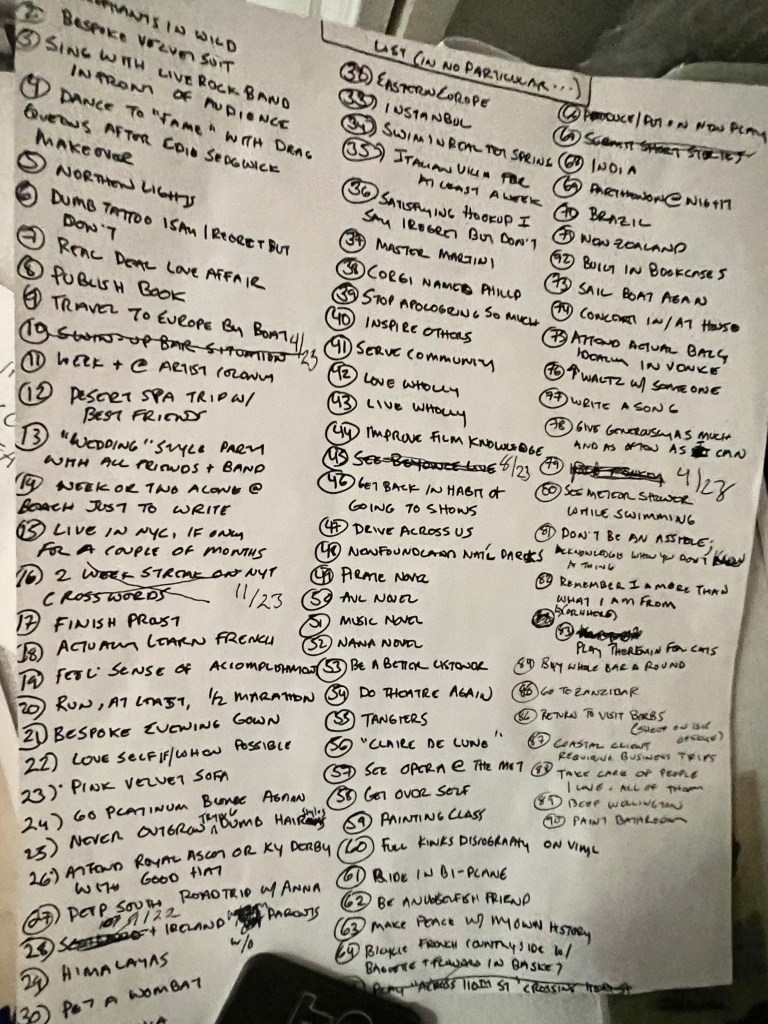 IN WILD
2) BESPOKE VELVET SUIT
3) SING WITH LIVE ROCK BAND
IN FRONT OF AUDIENCE
4) DANCE TO "FAME" WITH DRAG
QUEENS AFTER EDIE SEDGWICK
MAKEOVER
5) NORTHERN LIGHTS
6) DUMB TATTOO I SAY I REGRET BUT
DON'T
7) REAL DEAL LOVE AFFAIR
8) PUBLISH BOOK
9) TRAVEL TO EUROPE BY BOAT
10) SWIM-UP BAR SITUATION 4/23
11) WEEK + @ ARTIST COLONY
12) DESERT SPA TRIP W/
BEST FRIENDS
13) "WEDDING" STYLE PARTY
WITH ALL FRIENDS + BAND
14) WEEK OR TWO ALONE @
BEACH JUST TO WRITE
15) LIVE IN NYC, IF ONLY
FOR A COUPLE OF MONTHS
16) 2 WEEK STREAK ON NYT
CROSSWORDS 11/23
17) FINISH PROUST
18) ACTUALLY LEARN FRENCH
19) FEEL SENSE OF ACCOMPLISHMENT
20) RUN, AT LEAST, 1/2 MARATHON
21) BESPOKE EVENING GOWN
22) LOVE SELF IF/WHEN POSSIBLE
23) PINK VELVET SOFA
24) GO PLATINUM BLONDE AGAIN
25) NEVER OUTGROW DUMB HAIR
26) ATTEND ROYAL ASCOT OR KY DERBY
WITH GOOD HAT
27) DEEP SOUTH ROADTRIP W/ ANNA
28) + IRELAND W/O PARENTS
29) HIMALAYAS
30) PET A WOMBAT
LIST (IN NO PARTICULAR...)
32) EASTERN EUROPE
33) INSTANBUL
34) SWIM IN REAL HOT SPRING
35) ITALIAN VILLA FOR
AT LEAST A WEEK
36) SATISFYING HOOKUP I
SAY I REGRET BUT DON'T
37) MASTER MARTINI
38) CORGI NAMED PHILLP
39) STOP APOLOGIZING SO MUCH
40) INSPIRE OTHERS
41) SERVE COMMUNITY
42) LOVE WHOLLY
43) LIVE WHOLLY
44) IMPROVE FILM KNOWLEDGE
45) SEE BEYONCE LIVE 8/23
46) GET BACK IN HABIT OF
GOING TO SHOWS
47) DRIVE ACROSS US
48) NEWFOUNDLAND NAT'L PARKS
49) PIRATE NOVEL
50) AVL NOVEL
51) MUSIC NOVEL
52) NANA NOVEL
53) BE A BETTER LISTENER
54) DO THEATRE AGAIN
55) TANGIERS
56) "CLAIRE DE LUNE"
57) SEE OPERA @ THE MET
58) GET OVER SELF
59) PAINTING CLASS
60) FULL KINKS DISCOGRAPHY ON VINYL
61) RIDE IN BI-PLANE
62) BE AN UNSELFISH FRIEND
63) MAKE PEACE W/ MY OWN HISTORY
64) BICYCLE FRENCH COUNTRYSIDE W/
BAGUETTE + FLOWERS IN BASKET
PLAY "ACROSS 110TH ST" CROSSING 110TH ST
PRODUCE/PUT ON NEW PLAY
SUBMIT SHORT STORIES
68) INDIA
69) PARTHENON @ NIGHT
70) BRAZIL
71) NEW ZEALAND
72) BUILT IN BOOKCASES
73) SAIL BOAT AGAIN
74) CONCERT IN/AT HOUSE
75) ATTEND ACTUAL BALL,
IDEALLY IN VENICE
76) WALTZ W/ SOMEONE
77) WRITE A SONG
78) GIVE GENEROUSLY AS MUCH
AND AS OFTEN AS I CAN
79) 4/23
80) SEE METEOR SHOWER
WHILE SWIMMING
81) DON'T BE AN ASSHOLE;
ACKNOWLEDGE WHEN YOU DON'T KNOW
A THING
82) REMEMBER I AM MORE THAN
WHAT I AM FROM
83) PLAY THEREMIN FOR CATS
84) BUY WHOLE BAR A ROUND
85) GO TO ZANZIBAR
86) RETURN TO VISIT BARBS
87) COASTAL CLIENT
REQUIRING BUSINESS TRIPS
88) TAKE CARE OF PEOPLE
I LOVE. ALL OF THEM
89) BEEF WELLINGTON
90) PAINT BATHROOM